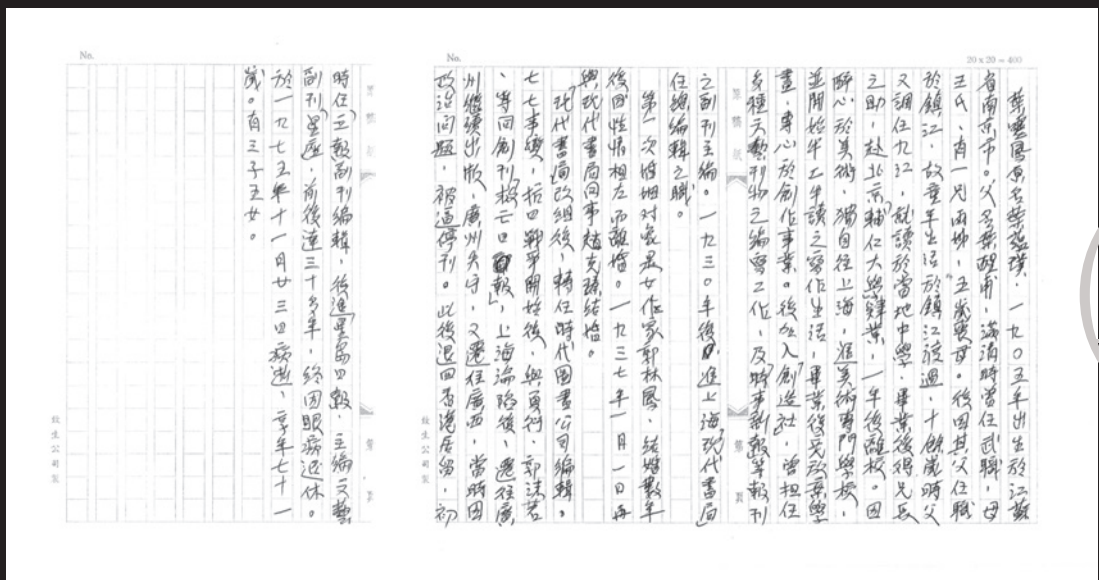 No.
20 x 20 = 400
葉靈鳳原名葉蘊璞，一九〇五年出生於江蘇
省南京市。父名葉醒甫，滿清時曾任武職，母
王氏，有一兄兩姊，五歲喪母。後因其父任職
於鎮江，故童年生活於鎮江渡過，十餘歲時父
又調任九江，就讀於當地中學，畢業後得兄長
之助，赴北京「輔仁大學」肄業，一年後離校。因
醉心於美術，獨自往上海，進美術專門學校，
並開始半工半讀之寫作生活，畢業後竟放棄學
畫，專心於創作事業。後加入「創造社」，曾担任
多種文藝刊物之編寫工作，及時事新報等報刊
之副刊主編。一九三〇年後，進上海「現代書局」
任總編輯之職。
第一次婚姻對象是女作家郭林鳳，結婚數年
後因性情相左而離婚。一九三七年一月一日再
與現代書局同事趙克臻結婚。
「現代書局」改組後，轉任時代圖書公司編輯。
七七事變，抗日戰爭開始後，與夏衍、郭沫若
、等同創刊「救亡日報」，上海淪陷後，遷往廣
州繼續出版，廣州失守，又遷往廣西，當時因
政治問題，被逼停刊。此後退回香港居留，初
原稿紙
第 頁
餘生公司製
No.
時任「立報」副刊編輯，後進星島日報，主編文藝
副刊「星座」，前後達三十多年，終因眼病退休。
於一九七五年十一月廿三日病逝，享年七十一
歲。有三子五女。
原稿紙
第 頁
餘生公司製